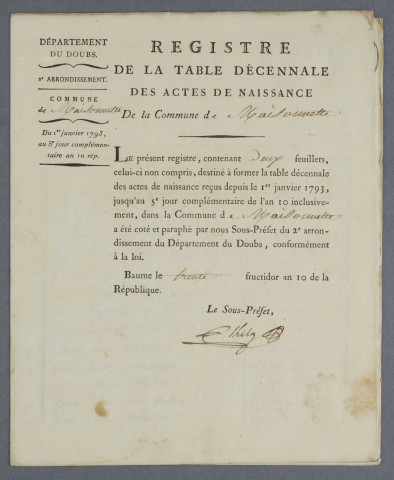 DÉPARTEMENT
DU DOUBS.
2e ARRONDISSEMENT.
COMMUNE
de Maisonnette
Du 1er janvier 1793,
au 5e jour complémen-
taire an 10 rép.
REGISTRE
DE LA TABLE DÉCENNALE
DES ACTES DE NAISSANCE
De la Commune de Maisonnette
LE présent registre, contenant deux feuillets,
celui-ci non compris, destiné à former la table décennale
des actes de naissance reçus depuis le 1er janvier 1793,
jusqu'au 5e jour complémentaire de l'an 10 inclusive-
ment, dans la Commune de Maisonnette
a été coté et paraphé par nous Sous-Préfet du 2e arron-
dissement du Département du Doubs, conformément
à la loi.
Baume le trente fructidor an 10 de la
République.
Le Sous-Préfet,